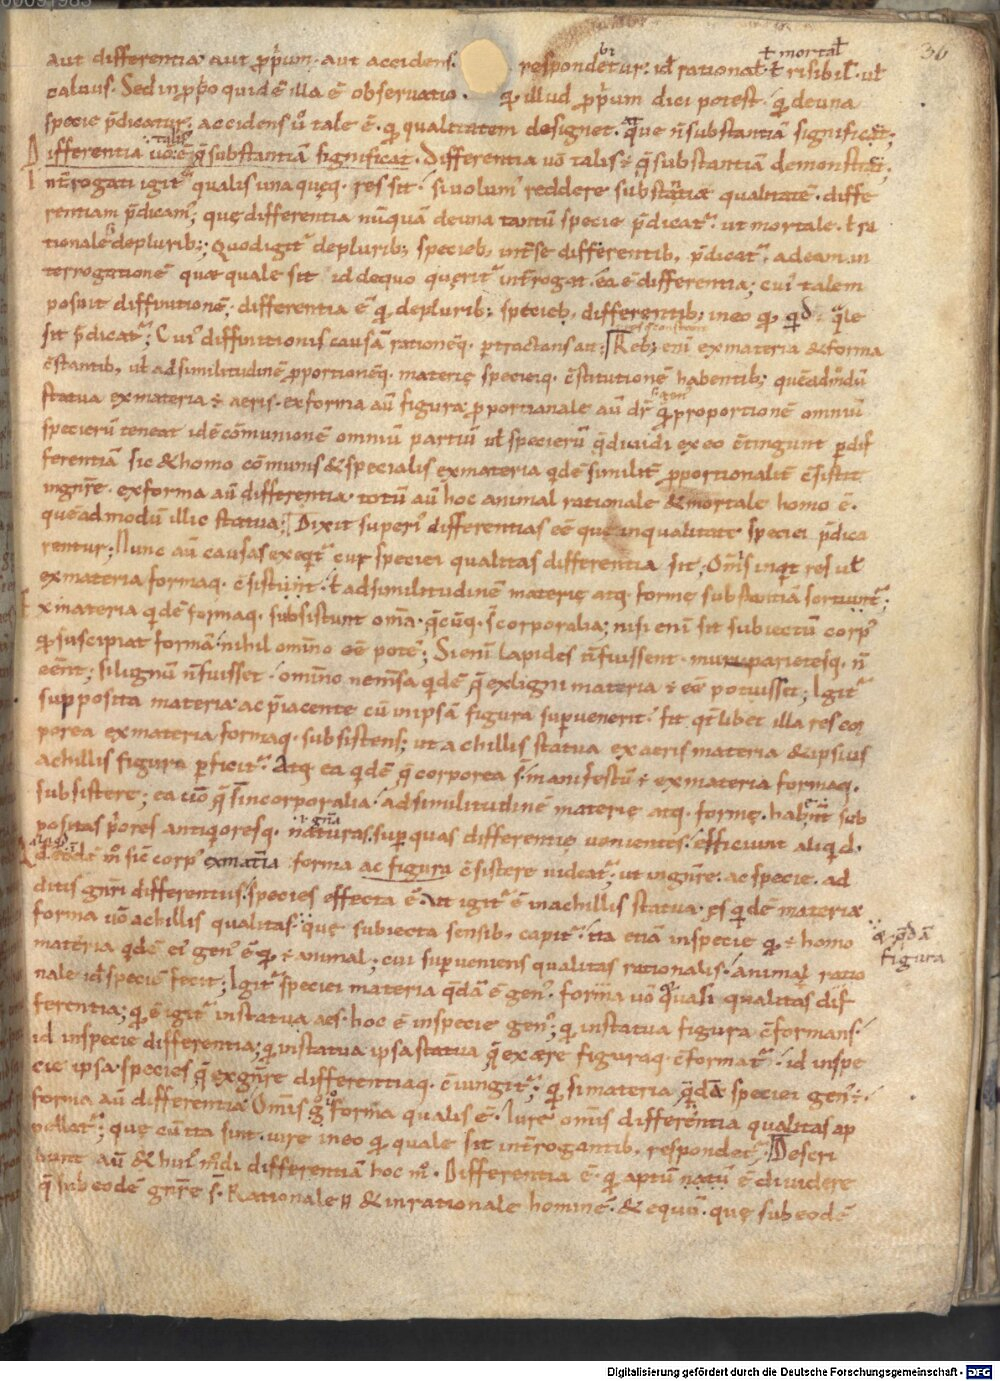 36
ł mortał
aut differentia aut ꝓprium. aut accidens. respondetur. ideł rational ł risibil. uł
caluus. Sed in ꝓprio quidē illa ē observatio. illud ꝓprium dici potest. deuna
specie p̄dicatur. accidens ū tale ē. qualitatem designet. que n̄ substantiā significat;
Differentia uō. ē q̄ substantiā significat. Differentia uō talis ē q̄ substantiā demonstrat;
Int̄rogati igit qualis unaquęq. res sit. si uolum reddere substantiæ qualitatē. diffe
rentiam p̄dicam; quę differentia nūquā deuna tantū specie p̄dicat. ut mortale. ł ra
tionale depluribꝫ; Quodigit depluribꝫ speciebꝫ int̄se differentibꝫ p̄dicat. adeam in
terrogationē quæ quale sit id dequo querit int̄rogat. ea ē differentia; cui talem
posuit diffinitionē. differentia ē q. depluribꝫ speciebꝫ differentibꝫ ineo qale
sit p̄dicat; Cui diffinitionis causā rationēq. ptractans ait; Rebꝫ enī exmateria & forma
c̄stantibꝫ uł adsimilitudinē ꝓportionēq. materię specieiq. c̄stitutionē habentibꝫ quēadmodū
statua exmateria ē aeris. exforma aū figura ꝓportionale aū dr̄ proportionē omniū
specierū teneat idē cōmunionē omniū partiū uł specierū q̄ diuidi ex eo c̄tingunt p dif
ferentiā sic & homo cōmunis & specialis exmateria qdē similit ꝓportionalit c̄sistit
ingn̄re. exforma aū differentia. totū aū hoc animal rationale & mortale homo ē.
quēadmodū illic statua; Dixit superi differentias eē que inqualitate speciei p̄dica
rentur; Nunc aū causas exeqt cur speciei qualitas differentia sit; Om̄s inqt res uł
exmateria formaq. c̄sistunt. ł adsimilitudinē materię atq. formę substantiā sortiunt;
Exmateria qdē formaq. subsistunt om̄a. q̄cūq. s̄ corporalia; nisi enī sit subiectū corp
suscipiat formā. nihil om̄ino eē pote; Si enī lapides n̄ fuissent. muri parietesq. n̄
eēnt; si lignū n̄ fuisset. om̄ino nem̄sa qdē q̄ exligni materia ē eē potuisset; Igit
supposita materia ac p̄iacente cū inipsā figura supuenerit. fit qt̄libet illa res cor
porea exmateria formaq. subsistens; ut achillis statua ex aeris materia & ipsius
achillis figura pficit. Atq. ea qdē q̄ corporea s̄. manifestū ē exmateria formaq.
subsistere; ea uō q̄ s̄ incorporalia. adsimilitudinē materię atq. formę. habent sub
positas p̄ores antiqioresq. naturas. supquas differentię uenientes. efficiunt aliqd.
qd eodē m̊ sic corp exmat̄ia forma ac figura c̄sistere uideat; ut ingn̄re. ac specie. ad
ditis gn̄ri differentiis. species effecta ē. Ut igit ē inachillis statua. ęs qdē materia
forma uō achillis qualitas. quę subiecta sensibꝫ capit. ita etiā inspecie ē homo
q̄dā figura
materia qdē ei gen ē q. ē animal; cui supueniens qualitas rationalis. animal ratio
nale id speciē fecit; Igit speciei materia q̄dā ē gen. forma uō quasi qualitas dif
ferentia; q ē igit instatua aes. hoc ē inspecie gen; q instatua figura c̄formans.
id inspecie differentia; q instatua ipsa statua q̄ exære figuraq. c̄format. id inspe
cie ipsa species q̄ exgn̄re differentiaq. c̄iungit; q si materia q̄dā speciei gen ē.
forma aū differentia. Om̄is forma qualis ē. Iure om̄is differentia qualitas ap
pellat; quę cū ita sint. iure ineo q quale sit int̄rogantibꝫ respondet; Descri
bunt aū & hui m̊di differentiā hoc m̊. Differentia ē. q aptū natū ē diuidere
q̄ sub eodē gn̄re s̄. Rationale & inrationale hominē. & equū. quę sub eodē
Digitalisierung gefördert durch die Deutsche Forschungsgemeinschaft - DFG